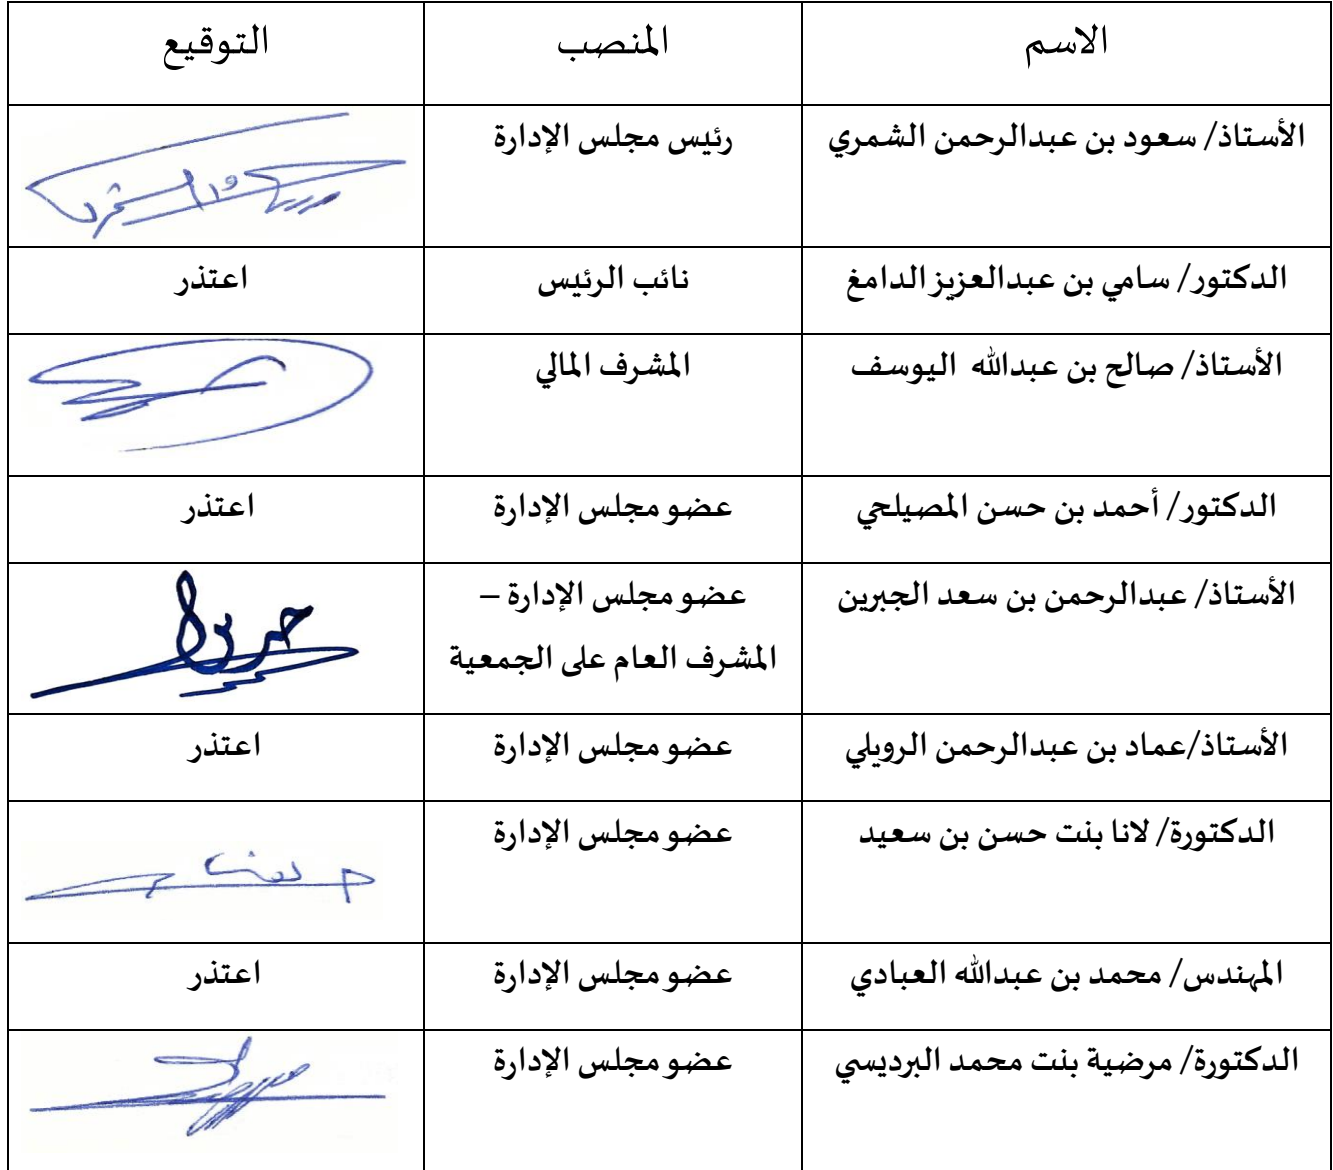 الاسم المنصب التوقيع
الأستاذ/ سعود بن عبدالرحمن الشمري رئيس مجلس الإدارة
الدكتور/ سامي بن عبدالعزيز الدامغ نائب الرئيس اعتذر
الأستاذ/ صالح بن عبدالله اليوسف المشرف المالي
الدكتور/ أحمد بن حسن المصيلحي عضو مجلس الإدارة اعتذر
الأستاذ/ عبدالرحمن بن سعد الجبرين عضو مجلس الإدارة –
المشرف العام على الجمعية
الأستاذ/عماد بن عبدالرحمن الرويلي عضو مجلس الإدارة اعتذر
الدكتورة/ لانا بنت حسن بن سعيد عضو مجلس الإدارة
المهندس/ محمد بن عبدالله العبادي عضو مجلس الإدارة اعتذر
الدكتورة/ مرضية بنت محمد البرديسي عضو مجلس الإدارة